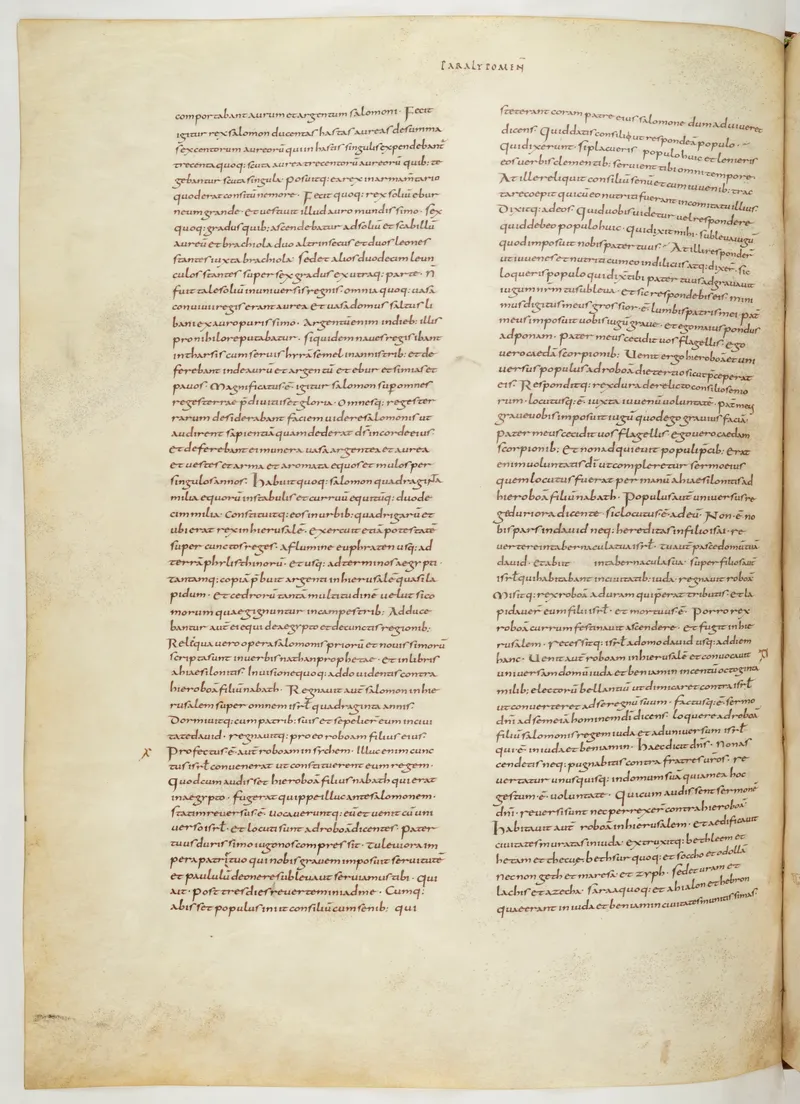 PARALYPOMEN̄
comportabant aurum et argentum salomoni· Fecit
igitur rex salomon ducentas hastas aureas desumma
sexcentorum aureorū qui in hastis singulis expendebant̄
trecenta quoq; scuta aurea trecentorū aureorū quib; te
gebantur scuta singula· posuitq; ea rex in armamtario
quod erat consitū nemore· Fecit quoq; rex soliū ebur
neum grande· et uestiuit illud auro mundissimo· sex
quoq; gradus quib; ascendebatur ad soliū et scabillū
aureū et brachiola duo altrinsecus et duos leones
stantes iuxta brachiola· sed et alios duodecim leun
culos stantes super sex gradus ex utraq; parte· n̄
fuit tale soliū in uniuersis regnis· omnia quoq; uasa
conuiuii regis erant aurea et uasa domus saltus li
bani ex auro purissimo· Argentū enim in dieb; illis
pro nihilo reputabatur· siquidem naues regis ibant
in tharsis cum seruis hyrā semel in annis trib; et de
ferebant inde aurū et argentū et ebur et simias et
pauos· Magnificatus ē· igitur salomon sup omnes
reges terrae p̄ diuitiis et gloria· Omnesq; reges ter
rarum desiderabant faciem uidere salomonis ut
audirent sapientiā quam dederat d̄s in corde eius·
et deferebant ei munera uasa argentea et aurea
et uestes et arma et aromata equos et mulos per
singulos annos· Habuit quoq; salomon quadraginta
milia equorū in stabulis et curruū equitūq; duode
cim milia· Constituitq; eos in urbib; quadrigarū et
ubi erat rex in hierusalē· exercuit etiā potestatē
super cunctos reges· a flumine euphraten usq; ad
terrā philisthinorū· et usq; ad terminos aegypti·
tantamq; copiā p̄buit argenti in hierusalē quasi la
pidum· et cedrorū tantā multitudinē uelut sico
morum quae gignuntur in campestrib; Adduce
bantur aut̄ ei equi de aegypto et de cunctis regionib;
Reliqua uero opera salomonis priorū et nouissimorū
scripta sunt in uerbis nathan prophetae· et in libris
ahiae silonitis· In uisione quoq; addo uidentis contra
hieroboā filiū nabath· Regnauit aut̄ salomon in hie
rusalem super omnem isrl̄ quadraginta annis·
Dormiuitq; cum patrib; suis et sepelier̄ eum in ciui
tate dauid· regnauitq; pro eo roboam filius eius·
Profectus ē· aut̄ roboam in sychem· Illuc enim cunc
tus isrl̄ conuenerat ut constituerent eum regem·
Quod cum audisset hieroboā filius nabath qui erat
in aegypto· fugerat quippe illuc ante salomonem·
statim reuersus ē· uocaueruntq; eū et uenit cū uni
uerso isrl̄· et locuti sunt ad roboā dicentes· Pater
tuus durissimo iugo nos compressit· tu leuiora im
pera patre tuo qui nobis grauem imposuit seruitutē
et paululū de onere subleua ut seruiamus tibi· Qui
ait· post tres dies reuertemini ad me· Cumq;
abisset populus iniit consiliū cum senib; qui
steterant coram patre eius salomone dum aduiueret
dicens· Quid datis consilii ut respondeā populo·
Qui dixerunt· si placueris populo huic et lenieris
eos uerbis clementib; seruient tibi omni tempore·
At ille reliquit consiliū senū et cum iuuenib; trac
tare coepit qui cū eo nutriti fuerant in comitatu illius·
Dixitq; ad eos· Quid uobis uidetur uel respondere
quid debeo populo huic· qui dixit mihi· subleua iugū
quod imposuit nobis pater tuus· At illi responder̄
ut iuuenes et nutriti cum eo in diliciis atq; dixer̄· sic
loqueris populo qui dixit tibi pater tuus adgrauauit
iugum nr̄m tu subleua· et sic respondebis eis· mini
mus digitus meus grossior ē· lumbis patris mei pat̄
meus imposuit uobis iugū graue· et ego maius pondus
adponam· pater meus cecidit uos flagellis ego
uero caedā scorpionib; Uenit ergo hieroboā et uni
uersus populus ad roboā die tertio sicut p̄ceperat
eis· Responditq; rex dura derelicto consilio senio
rum· locutusq; ē· iuxta iuuenū uoluntatē· pat̄ meus
graue uobis imposuit iugū quod ego grauius faciā·
pater meus cecidit uos flagellis· ego uero caedam
scorpionib; Et non adquieuit populi p̄cib; erat
enim uoluntatis dī ut compleretur sermo eius
quem locutus fuerat per manū ahiae silonitis ad
hieroboā filiū nabath· Populus aut̄ uniuersus re
ge duriora dicente sic locutus ē· ad eū· Non ē· no
bis pars in dauid neq; hereditas in filio isai· re
uertere in tabernacula tua isrl̄· tu aut̄ pasce domū tuā
dauid· et abiit in tabernacula sua· super filios aut̄
isrl̄ qui habitabant in ciuitatib; iuda· regnauit roboā
Misitq; rex roboā aduram qui p̄erat tributis· et la
pidauer̄ eum filii isrl̄· et mortuus ē· Porro rex
roboā currum festinauit ascendere· et fugit in hie
rusalem· recessitq; isrl̄ a domo dauid usq; ad diem
hanc· Uenit aut̄ roboam in hierusalē et conuocauit
uniuersam domū iuda et beniamin in centū octoginta
milib; electorū bellantiū ut dimicaret contra isrl̄·
ut conuerteret ad se regnū suum· factusq; ē· sermo
dn̄i ad semeiā hominem dī dicens· loquere ad roboā
filiū salomonis regem iuda et ad uniuersum isrl̄·
qui ē· in iuda et beniamin· haec dicit dn̄s· Non as
cendetis neq; pugnabitis contra fratres uros· re
uertatur unusquisq; in domum suā quia mea hoc
gestum ē· uoluntate· Qui cum audissent sermonē
dn̄i· reuersi sunt nec perrexer̄ contra hieroboā·
Habitauit aut̄ roboā in hierusalem· et aedificauit
ciuitates muratas in iuda· extruxitq; bethleem et
hetam et thecue· bethsur quoq; et soccho et odollā
necnon geth et maresa· et zyph· sed et uram et
lachis et azecha· saraa quoq; et ahialon et hebron
quae erant in iuda et beniamin ciuitates munitissimas·